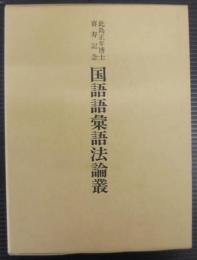 此島正年博士
喜寿記念
国語語彙語法論叢